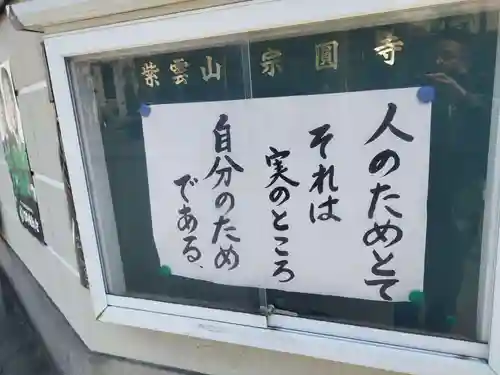 紫雲山 宗圓寺
人のためと
それは
実のところ
自分のため
である。